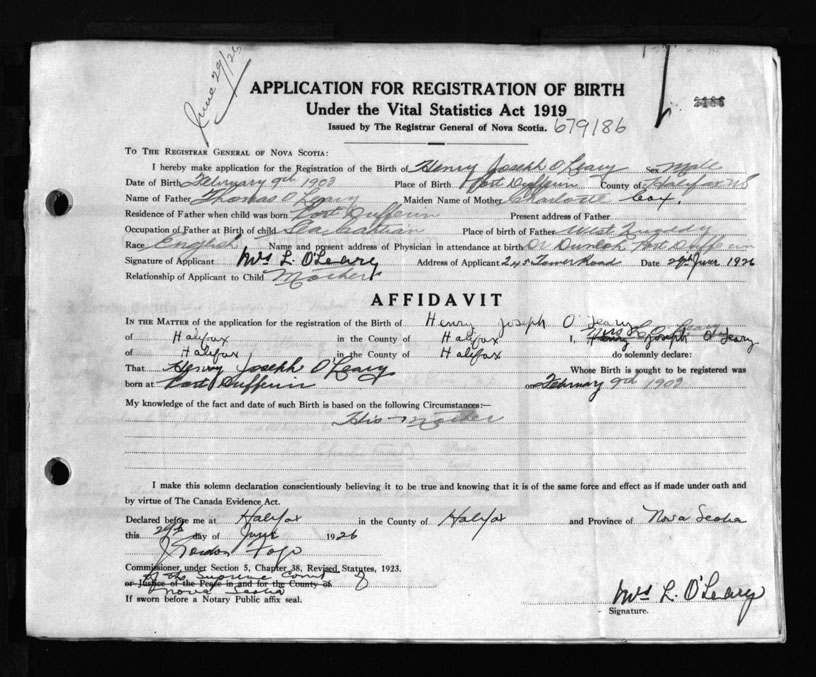 June 29/26
APPLICATION FOR REGISTRATION OF BIRTH
Under the Vital Statistics Act 1919
Issued by The Registrar General of Nova Scotia. 679186
To The Registrar General of Nova Scotia:
I hereby make application for the Registration of the Birth of Henry Joseph O'Leary Sex Male
Date of Birth February 9th Place of Birth Port Dufferin County of Halifax NS
Name of Father Thomas O'Leary Maiden Name of Mother Charlotte Cox.
Residence of Father when child was born Port Dufferin Present address of Father
Occupation of Father at Birth of child Place of birth of Father West Quoddy
Race English Name and present address of Physician in attendance at birth Dr Dunlop Port Dufferin
Signature of Applicant Mrs L. O'Leary Address of Applicant 245 Tower Road Date 29th June 1926
Relationship of Applicant to Child Mother
AFFIDAVIT
In the Matter of the application for the registration of the Birth of Henry Joseph O'Leary
of Halifax in the County of Halifax I, Henry Joseph O'Leary
of Halifax in the County of Halifax do solemnly declare:
That Henry Joseph O'Leary Whose Birth is sought to be registered was
born at Port Dufferin on February 9th
My knowledge of the fact and date of such Birth is based on the following Circumstances:—
His Mother
I make this solemn declaration conscientiously believing it to be true and knowing that it is of the same force and effect as if made under oath and
by virtue of The Canada Evidence Act.
Declared before me at Halifax in the County of Halifax and Province of Nova Scotia
this 29th day of June 1926
Commissioner under Section 5, Chapter 38, Revised Statutes, 1923.
of the Supreme Court of
or Justice of the Peace in and for the County of
Nova Scotia
If sworn before a Notary Public affix seal.
Mrs L. O'Leary
Signature.